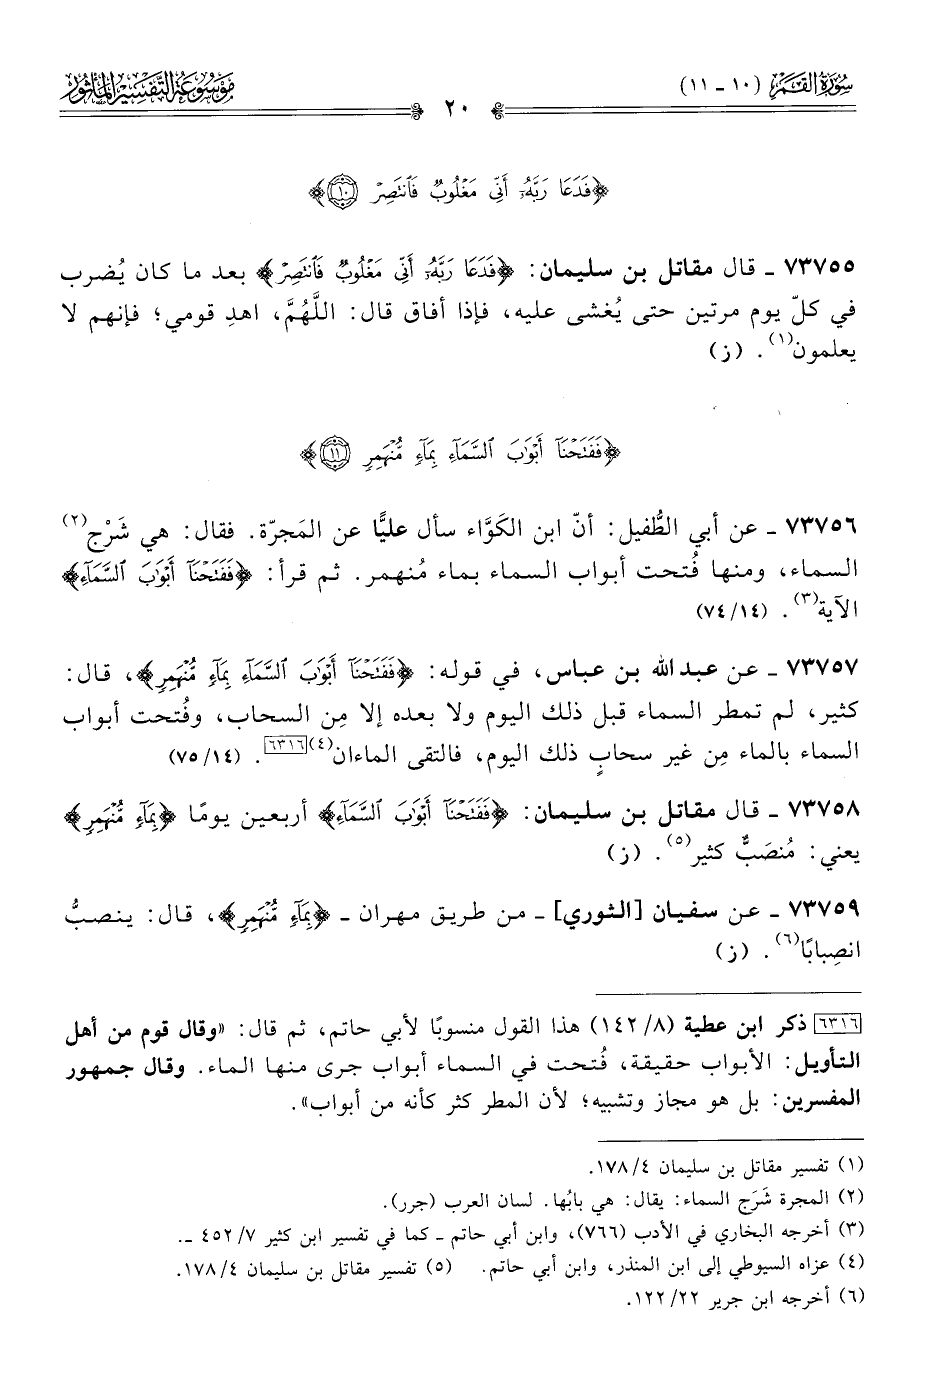 سُورَةُ القَمَرِ (١٠ - ١١)
٢٠
مَوْسُوعَةُ التَّفْسِيرِ المَأْثُورِ
﴿فَدَعَا رَبَّهُۥٓ أَنِّى مَغْلُوبٌ فَٱنتَصِرْ ١٠﴾
٧٣٧٥٥ ـ قال مقاتل بن سليمان: ﴿فَدَعَا رَبَّهُۥٓ أَنِّى مَغْلُوبٌ فَٱنتَصِرْ﴾ بعد ما كان يُضرب
في كلّ يوم مرتين حتى يُغشى عليه، فإذا أفاق قال: اللَّهُمَّ، اهدِ قومي؛ فإنهم لا
يعلمون(١). (ز)
﴿فَفَتَحْنَآ أَبْوَٰبَ ٱلسَّمَآءِ بِمَآءٍ مُّنْهَمِرٍ ١١﴾
٧٣٧٥٦ ـ عن أبي الطُّفيل: أنّ ابن الكَوَّاء سأل عليًّا عن المَجرّة. فقال: هي شَرْج(٢)
السماء، ومنها فُتحت أبواب السماء بماء مُنهمر. ثم قرأ: ﴿فَفَتَحْنَآ أَبْوَٰبَ ٱلسَّمَآءِ﴾
الآية(٣). (٧٤/١٤)
٧٣٧٥٧ ـ عن عبد الله بن عباس، في قوله: ﴿فَفَتَحْنَآ أَبْوَٰبَ ٱلسَّمَآءِ بِمَآءٍ مُّنْهَمِرٍ﴾، قال:
كثير، لم تمطر السماء قبل ذلك اليوم ولا بعده إلا مِن السحاب، وفُتحت أبواب
السماء بالماء مِن غير سحابٍ ذلك اليوم، فالتقى الماءان(٤)[٦٣١٦]. (٧٥/١٤)
٧٣٧٥٨ ـ قال مقاتل بن سليمان: ﴿فَفَتَحْنَآ أَبْوَٰبَ ٱلسَّمَآءِ﴾ أربعين يومًا ﴿بِمَآءٍ مُّنْهَمِرٍ﴾
يعني: مُنصَبٌّ كثير(٥). (ز)
٧٣٧٥٩ ـ عن سفيان [الثوري] ـ من طريق مهران ـ ﴿بِمَآءٍ مُّنْهَمِرٍ﴾، قال: ينصبُّ
انصِبابًا(٦). (ز)
[٦٣١٦] ذكر ابن عطية (١٤٢/٨) هذا القول منسوبًا لأبي حاتم، ثم قال: «وقال قوم من أهل
التأويل: الأبواب حقيقة، فُتحت في السماء أبواب جرى منها الماء. وقال جمهور
المفسرين: بل هو مجاز وتشبيه؛ لأن المطر كثر كأنه من أبواب».
(١) تفسير مقاتل بن سليمان ١٧٨/٤.
(٢) المجرة شَرَج السماء: يقال: هي بابُها. لسان العرب (جرر).
(٣) أخرجه البخاري في الأدب (٧٦٦)، وابن أبي حاتم ـ كما في تفسير ابن كثير ٤٥٢/٧ ـ.
(٤) عزاه السيوطي إلى ابن المنذر، وابن أبي حاتم. (٥) تفسير مقاتل بن سليمان ١٧٨/٤.
(٦) أخرجه ابن جرير ١٢٢/٢٢.